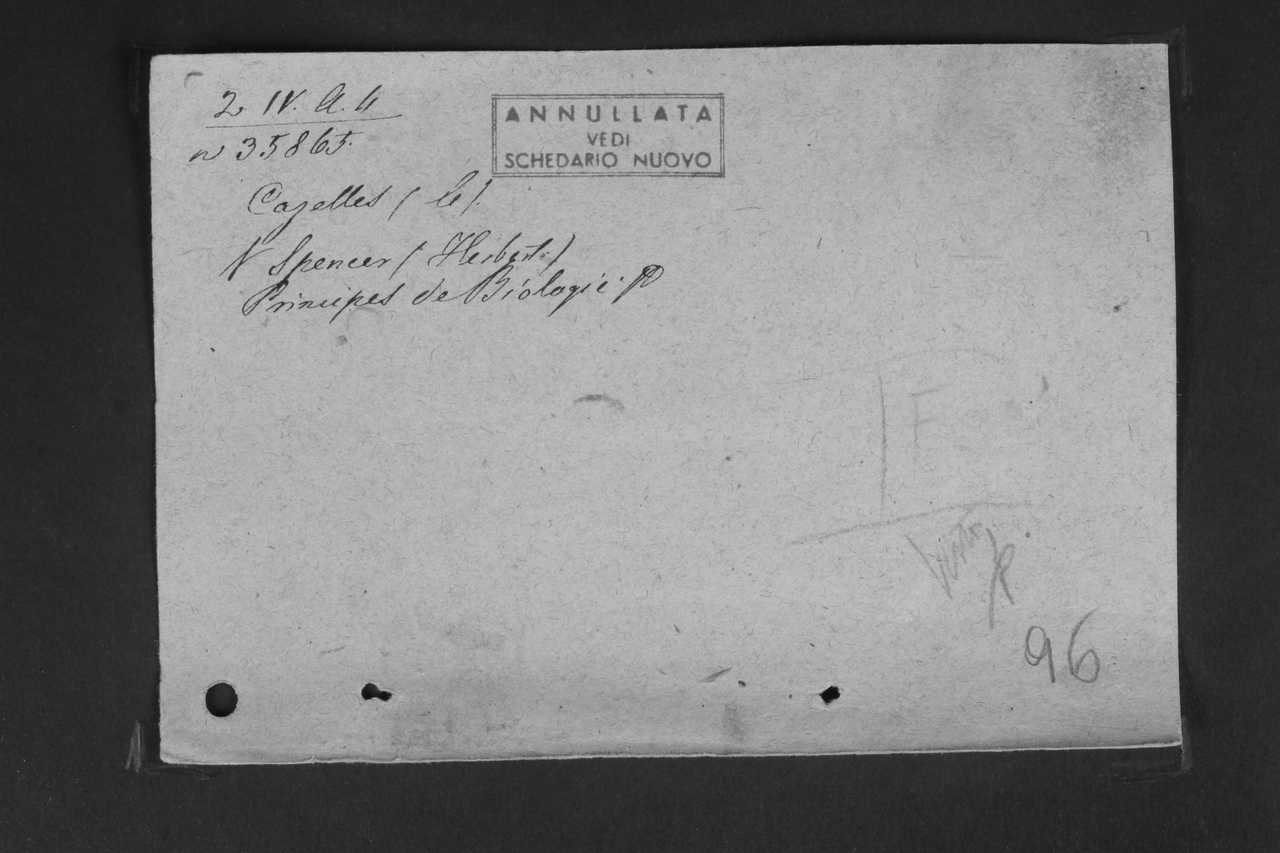 2 IV. A. 4
n 35865.
ANNULLATA
VEDI
SCHEDARIO NUOVO
Cazelles (
V Spencer (Herbert)
Principes de Biologie.
F
96